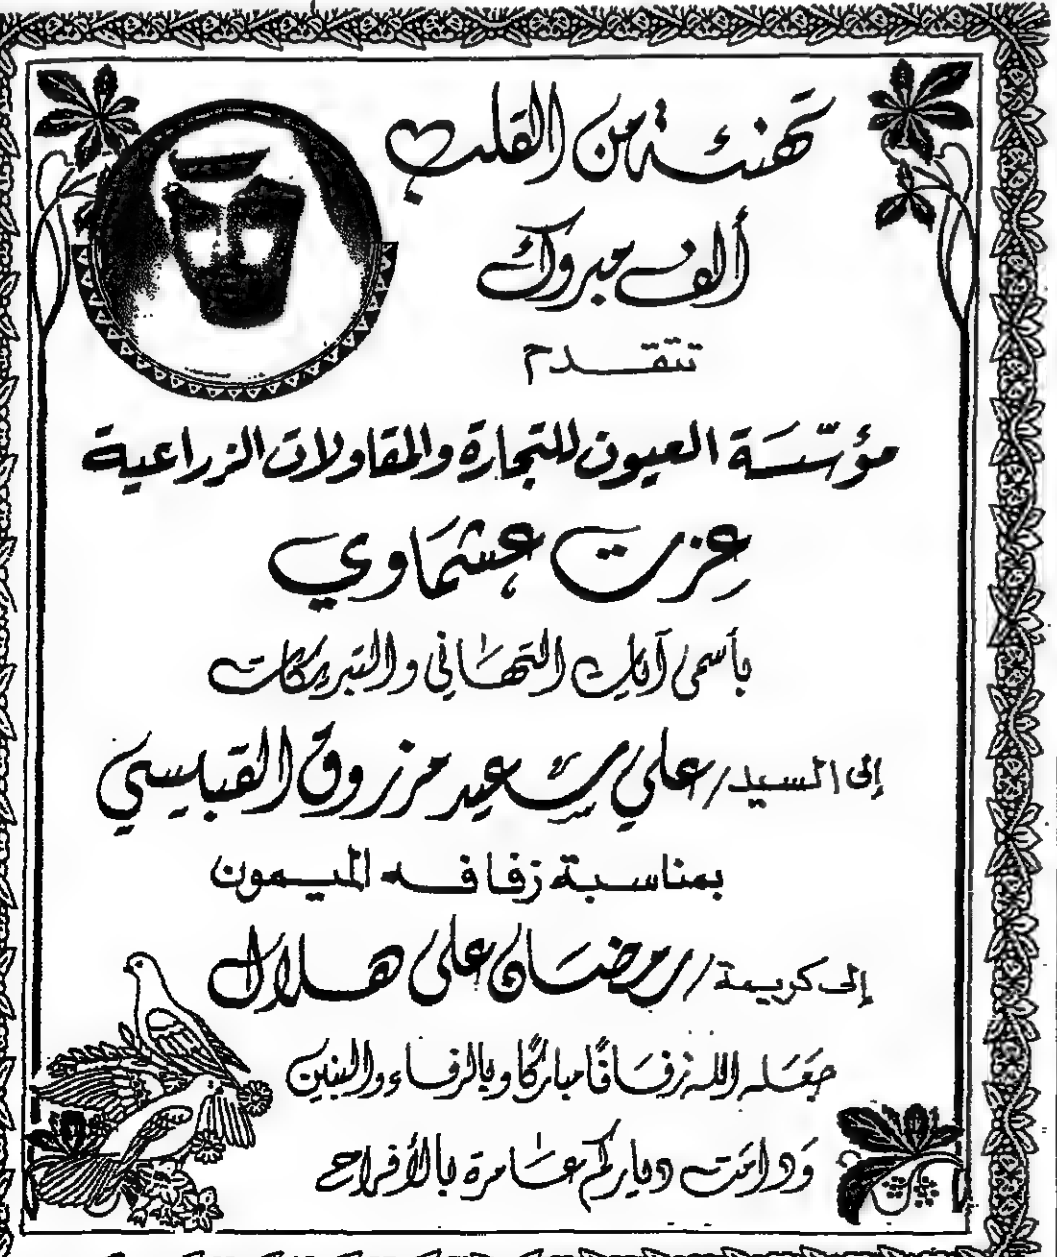 تهنئة من القلب
ألف مبروك
تتقدم
مؤسّسَة العيون للتجارة والمقاولات الزراعية
عزت عشماوي
بأسمى آيات التهاني والتبريكات
إلى السيد/ علي سعيد مرزوق القبيسي
بمناسبة زفافه الميمون
إلى كريمة/ رمضان على هلال
جَعَله الله زفافًا مباركًا وبالرفاء والبنين
وَدامَت دياركم عامرة بالأفراح